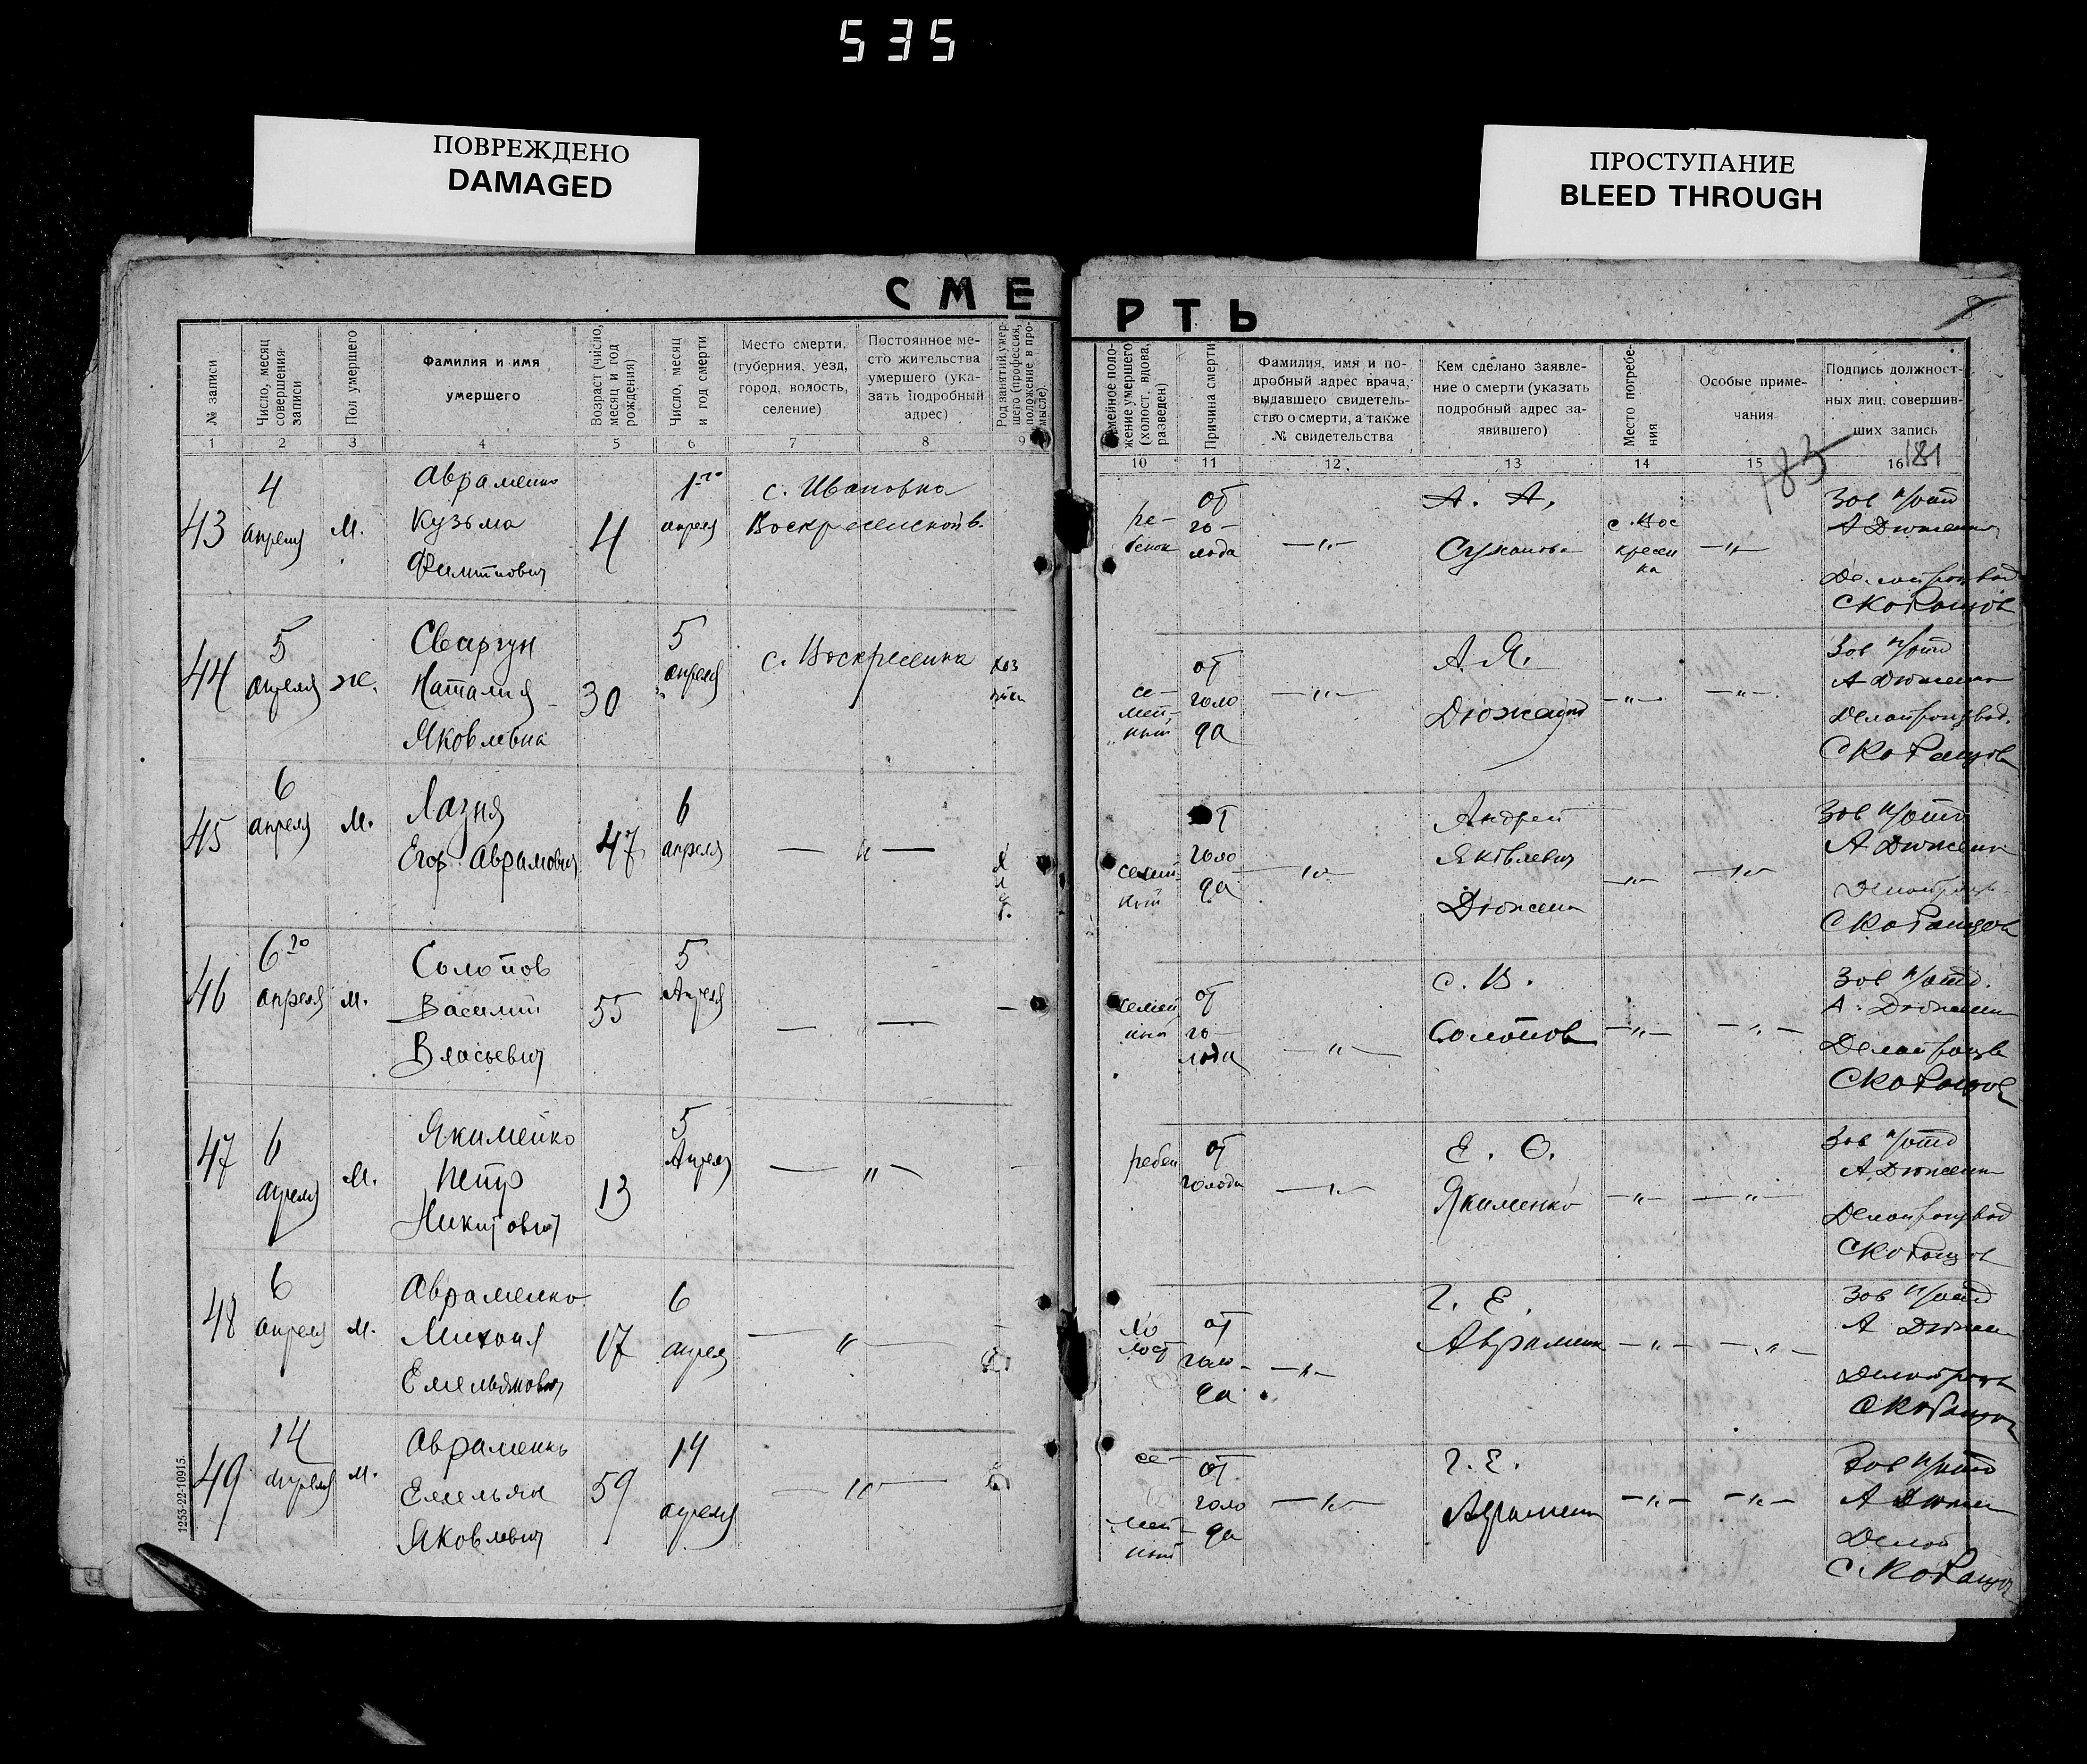 535
ПОВРЕЖДЕНО
DAMAGED
ПРОСТУПАНИЕ
BLEED THROUGH
СМЕ
РТЬ
№ записи
Число, месяц совершения записи
Пол умершего
Фамилия и имя
умершего
Возраст (число, месяц и год рождения)
Число, месяц и год смерти
Место смерти, (губерния, уезд, город, волость, селение)
Постоянное место жительства умершего (указать подробный адрес)
Род занятий умершего (профессия, положение в промысле).
Семейное положение умершего (холост, вдова, разведен)
Причина смерти
Фамилия, имя и подробный адрес врача, выдавшего свидетельство о смерти, а также № свидетельства
Кем сделано заявление о смерти (указать подробный адрес заявившего)
Место погребения
Особые примечания
Подпись должностных лиц, совершивших запись
1 2 3 4 5 6 7 8 9
10 11 12 13 14 15 16
183
181
43
4
апреля
м.
Авраменко
Кузьма
Филиппович
4
1го
апреля
с. Ивановка
Воскресенской в.
ре-
бенок
от
го-
лода
—"—
А. А.
с. Вос
кресен
ка
—"—
Зав п/отд
А Дюженко
Делопроизвод
44
5
апреля
ж.
Сваргун
Наталия
Яковлевна
30
5
апреля
с. Воскресенка
хоз
се-
мей-
ный
от
голо
да
—"—
А. Я.
Дюженко
—"—
—"—
Зав п/отд
А Дюженко
Делопроизвод.
45
6
апреля
м.
Лазня
Егор Аврамович
47
6
апреля
— " —
семей-
ный
от
голо
да
—"—
Андрей
Яковлевич
Дюженко
—"—
—"—
Зав п/отд
А Дюженко
46
6го
апреля
м.
Солопов
Василий
Власьевич
55
5
Апреля
— —
семей
от
го-
лода
—"—
С. В.
Солопов
—"—
—"—
Зав п/отд.
А. Дюженко
47
6
апреля
м.
Якименко
Петр
Никитович
13
5
Апреля
— " —
ребен
от
голода
—"—
Е. О.
Якименко
—"—
—"—
Зав п/отд
А Дюженко
Делопроизвод
48
6
апреля
м.
Авраменко
Михаил
Емельянович
17
6
апреля
— " —
хо
лост
от
голо-
да
—"—
Г. Е.
Авраменк
—"—
—"—
Зав п/отд
А Дюжен
49
14
апреля
м.
Авраменко
Емельян
Яковлевич
59
14
апреля
— " —
се-
мей-
ный
от
голо
да
—"—
Г. Е.
Авраменк
—"—
—"—
Зав п/отд
А Дюжен
Делоп
1253-22-10915.